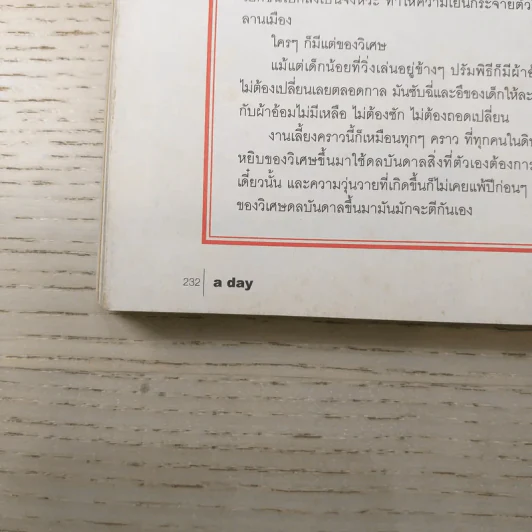 ลานเมือง
ใครๆ ก็มีแต่ของวิเศษ
แม้แต่เด็กน้อยที่วิ่งเล่นอยู่ข้างๆ ปรัมพิธีก็มีผ้าอ้
ไม่ต้องเปลี่ยนเลยตลอดกาล มันซับฉี่และอึของเด็กให้ละ
กับผ้าอ้อมไม่มีเหลือ ไม่ต้องซัก ไม่ต้องถอดเปลี่ยน
งานเลี้ยงคราวนี้ก็เหมือนทุกๆ คราว ที่ทุกคนในดิน
หยิบของวิเศษขึ้นมาใช้ดลบันดาลสิ่งที่ตัวเองต้องการ
เดี๋ยวนั้น และความวุ่นวายที่เกิดขึ้นก็ไม่เคยแพ้ปีก่อนๆ
ของวิเศษดลบันดาลขึ้นมามันมักจะตีกันเอง
232 a day